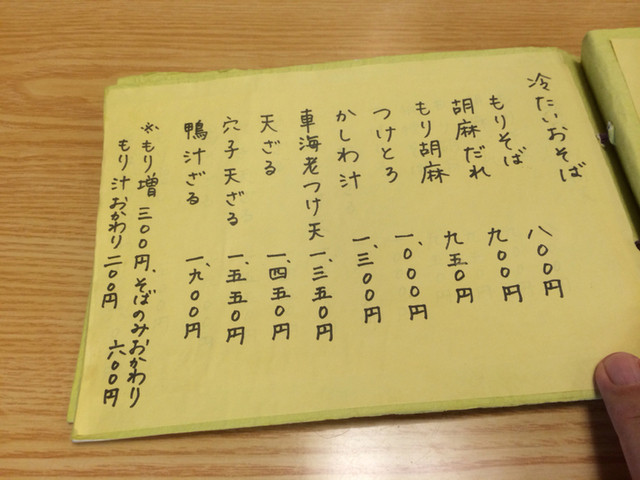 冷たいおそば
もりそば 八〇〇円
胡麻だれ 九〇〇円
もり胡麻 九五〇円
つけとろ 一、〇〇〇円
かしわ汁 一、三〇〇円
車海老つけ天 一、三五〇円
天ざる 一、四五〇円
穴子天ざる 一、五五〇円
鴨汁ざる 一、九〇〇円
※もり増 三〇〇円、そばのみおかわり 六〇〇円
もり汁おかわり 二〇〇円